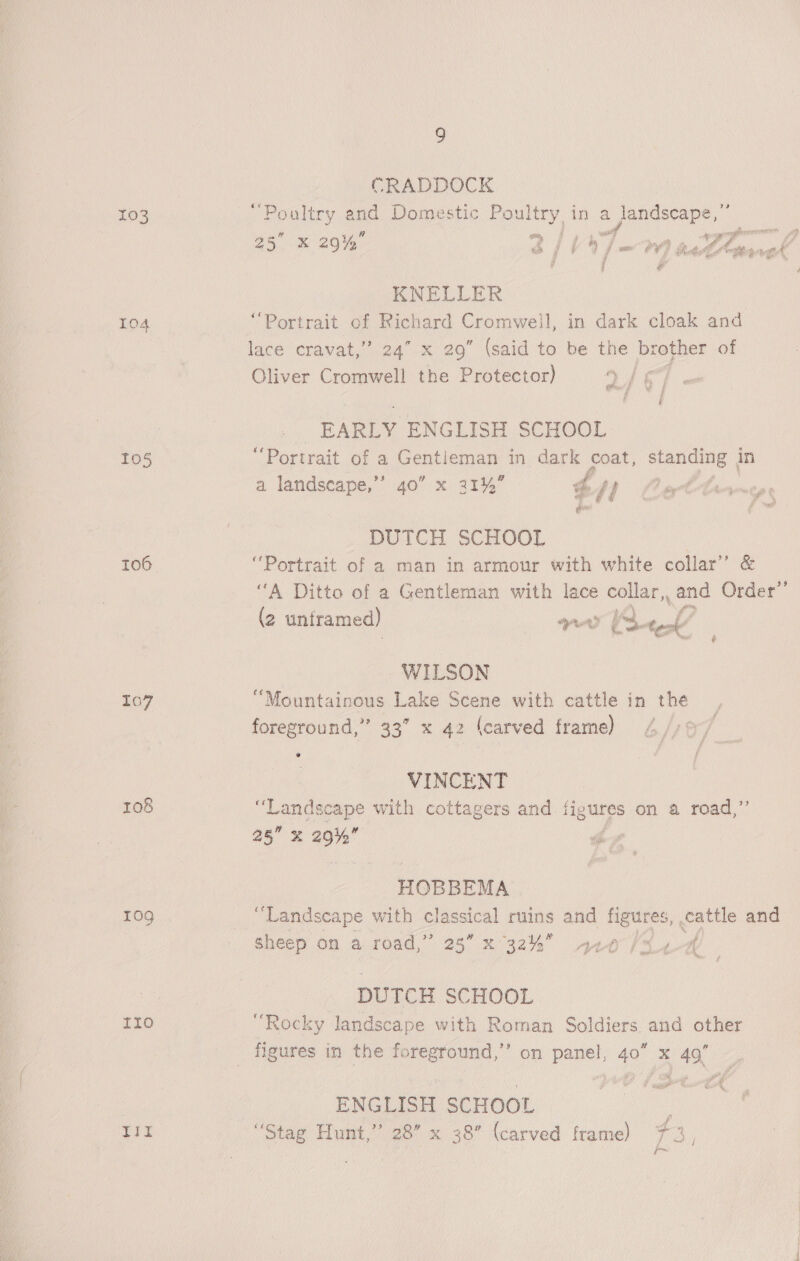 9
CRADDOCK
103 “Poultry and Domestic Poultry in a landscape,”
25" x 29½"
KNELLER
104 “Portrait of Richard Cromwell, in dark cloak and
lace cravat,” 24" x 29" (said to be the brother of
Oliver Cromwell the Protector)
EARLY ENGLISH SCHOOL
105 “Portrait of a Gentleman in dark coat, standing in
a landscape,” 40" x 31½"
DUTCH SCHOOL
106 “Portrait of a man in armour with white collar” &
“A Ditto of a Gentleman with lace collar,, and Order”
(2 unframed)
WILSON
107 “Mountainous Lake Scene with cattle in the
foreground,” 33" x 42 (carved frame)
VINCENT
108 “Landscape with cottagers and figures on a road,”
25" x 29½"
HOBBEMA
109 “Landscape with classical ruins and figures, cattle and
sheep on a road,” 25" x 32½"
DUTCH SCHOOL
110 “Rocky landscape with Roman Soldiers and other
figures in the foreground,” on panel, 40" x 49"
ENGLISH SCHOOL
111 “Stag Hunt,” 28" x 38" (carved frame)